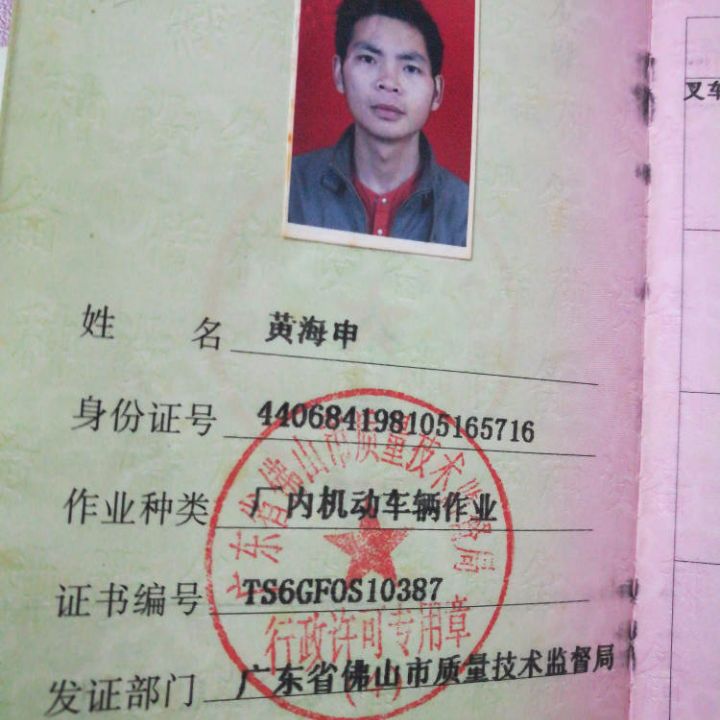 姓 名 黄海申
身份证号 440684198105165716
作业种类 厂内机动车辆作业
证书编号 TS6GFOS10387
发证部门 广东省佛山市质量技术监督局
广东省佛山市质量技术监督局
行政许可专用章
叉车